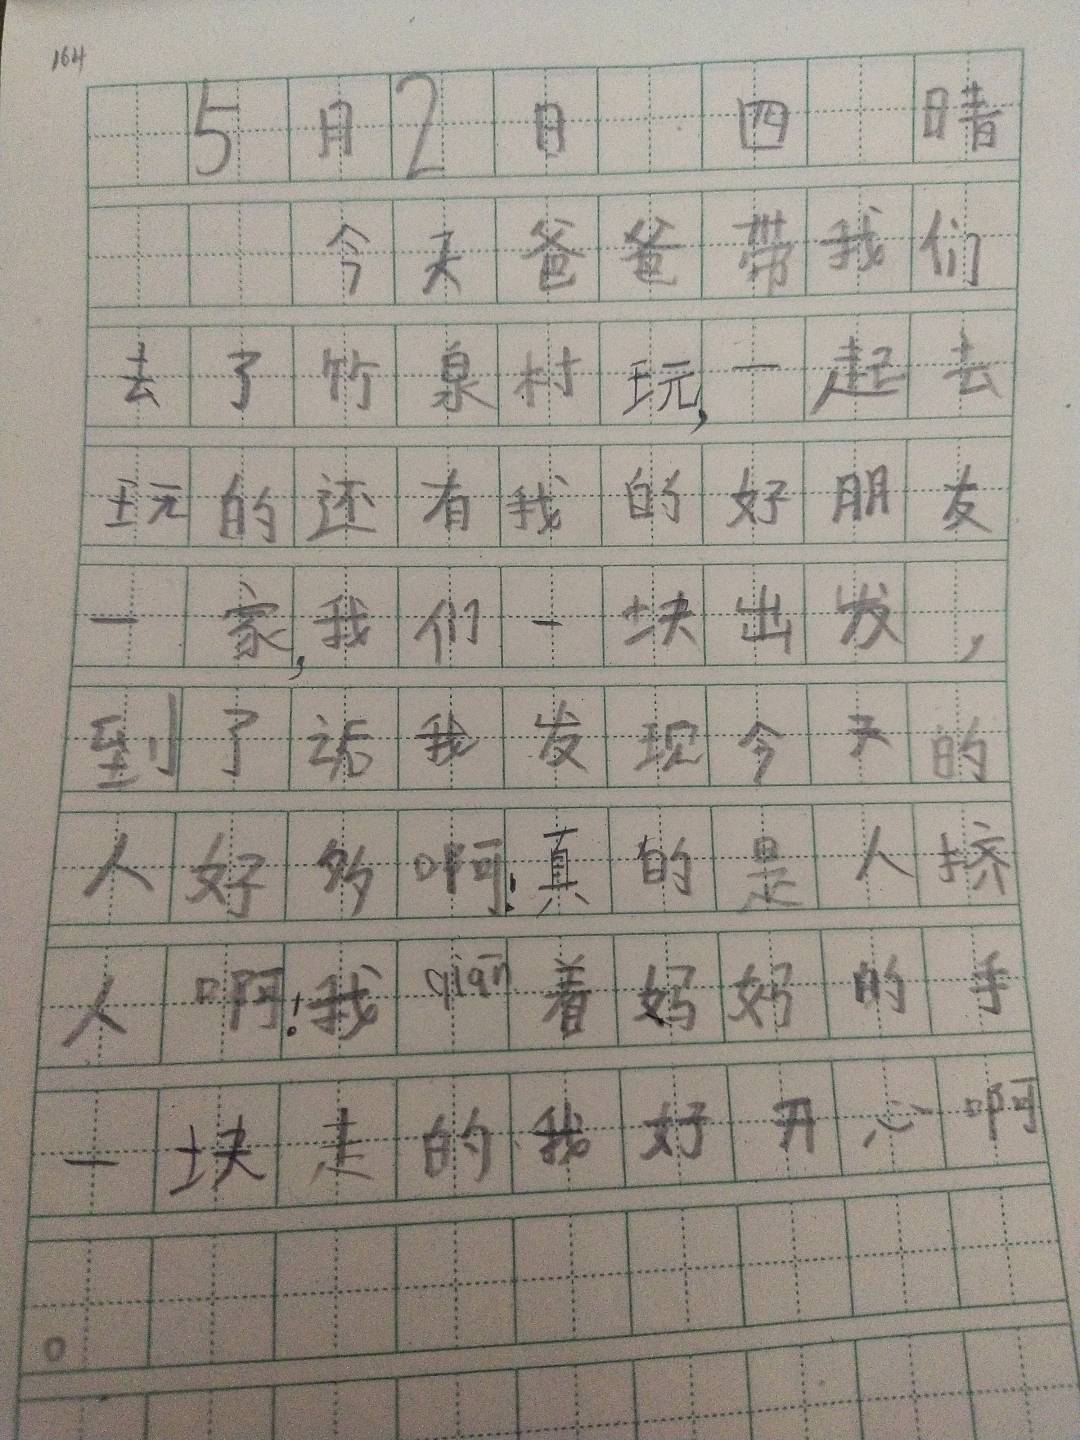 164
5月2日 四 晴
今天爸爸带我们
去了竹泉村玩,一起去
玩的还有我的好朋友
一家,我们一块出发,
到了后我发现今天的
人好多啊!真的是人挤
人啊!我qiān着妈妈的手
一块走的我好开心啊
。